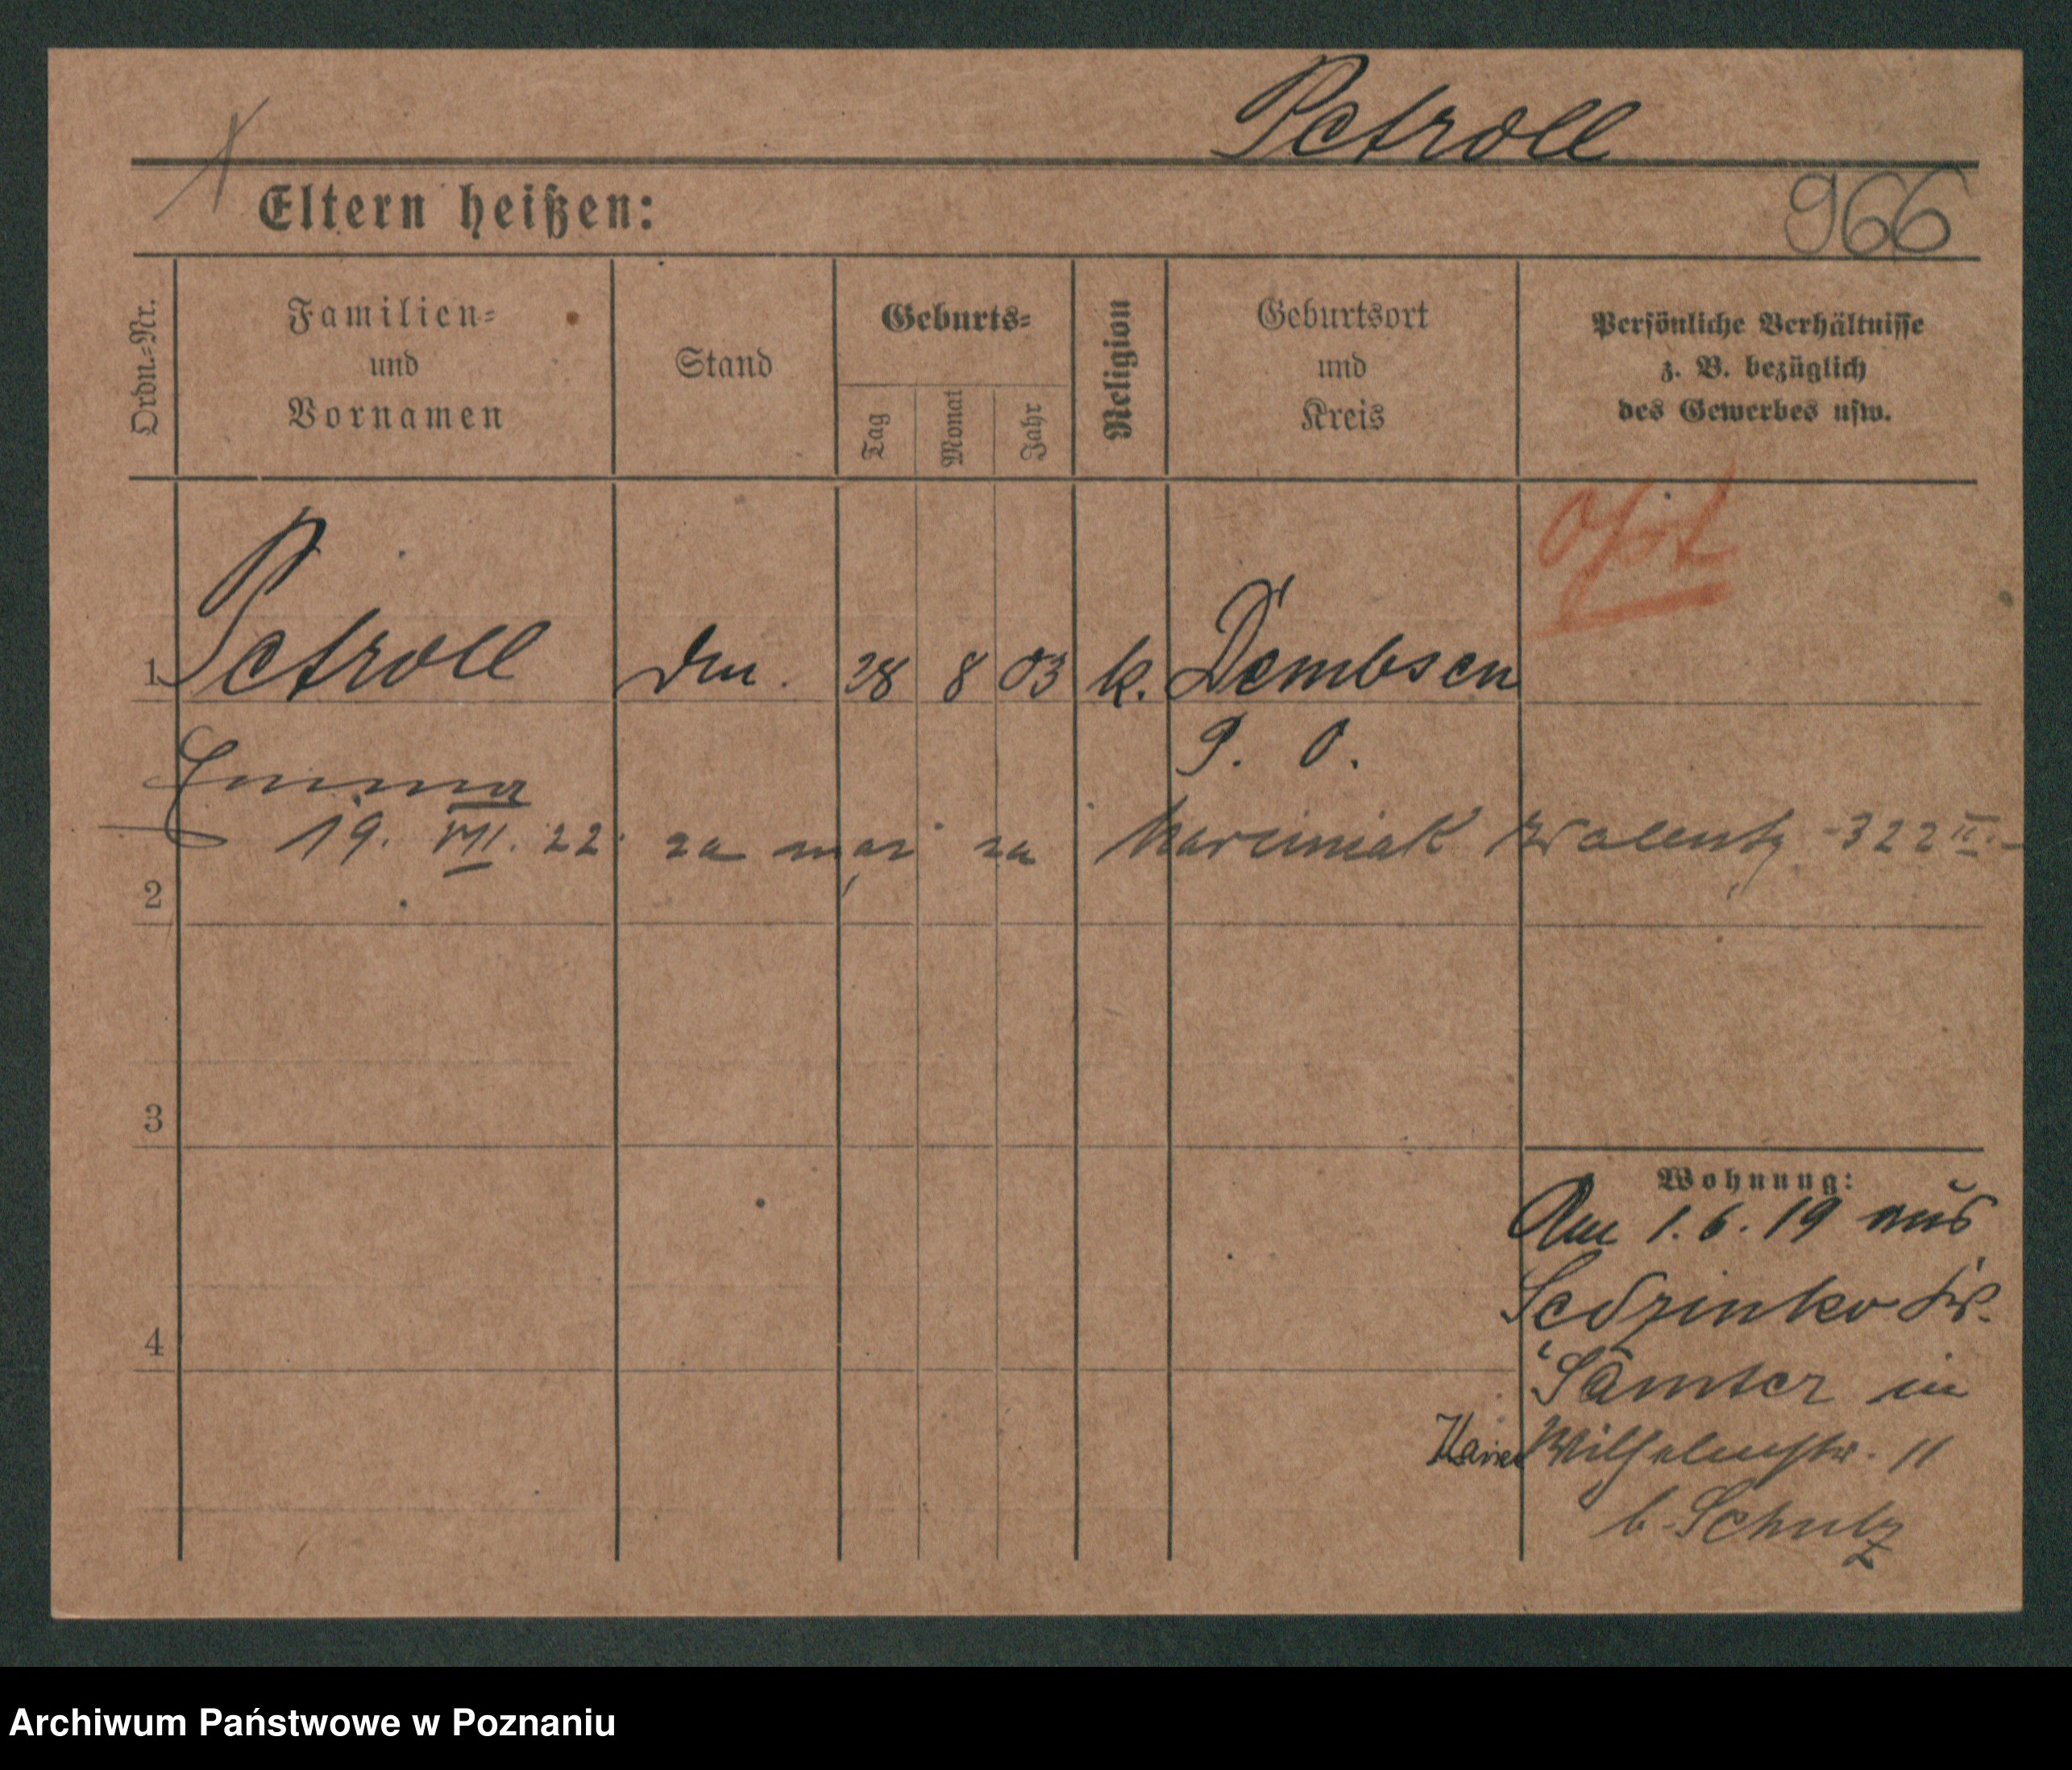 Petroll
Eltern heißen:
966
Ordn.-Nr.
Familien-
und
Vornamen
Stand
Geburts-
Tag
Monat
Jahr
Religion
Geburtsort
und
Kreis
Persönliche Verhältnisse
z. B. bezüglich
des Gewerbes usw.
1 Petroll 28 8 03 k. Dembsen
Emma P. O.
19. VII. 22 za mąż za Marciniak Walenty - 322 II. -
2
3
4
Wohnung:
Am 1.6.19 aus
Sedzinko Kr.
Samter in
Kaiser Wilhelmstr. 11
b. Schulz
Archiwum Państwowe w Poznaniu